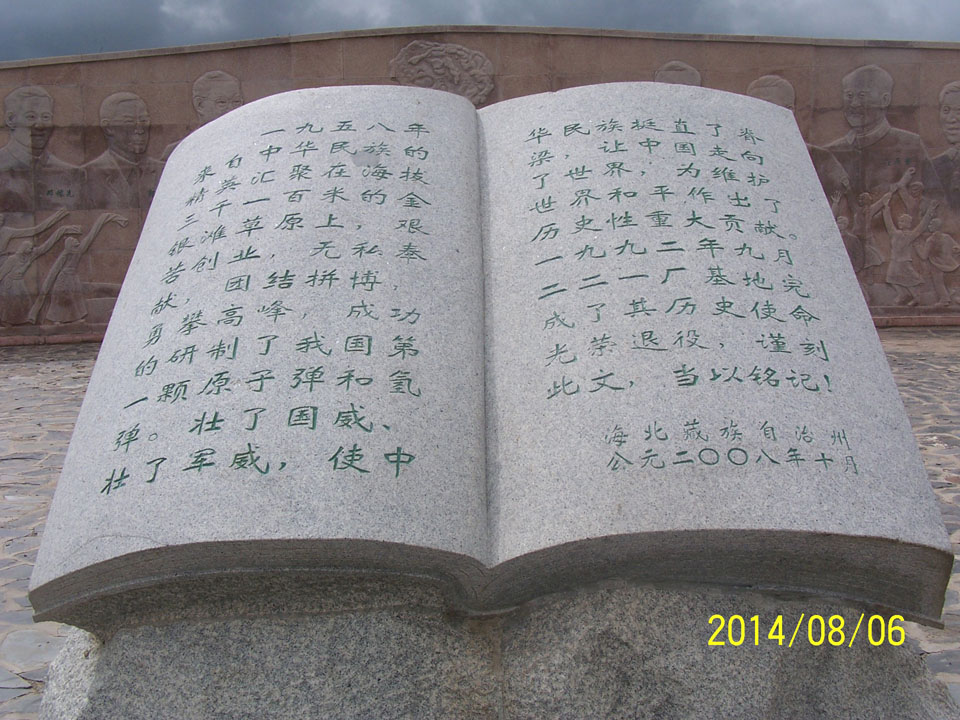 一九五八年
来自中华民族的
精英汇聚在海拔
三千一百米的金
银滩草原上，艰
苦创业，无私奉
献，团结拼博，
勇攀高峰，成功
的研制了我国第
一颗原子弹和氢
弹。壮了国威、
壮了军威，使中
华民族挺直了脊
梁，让中国走向
了世界，为维护
世界和平作出了
历史性重大贡献。
一九九二年九月
二二一厂基地完
成了其历史使命
光荣退役，谨刻
此文，当以铭记！
海北藏族自治州
公元二〇〇八年十月
2014/08/06